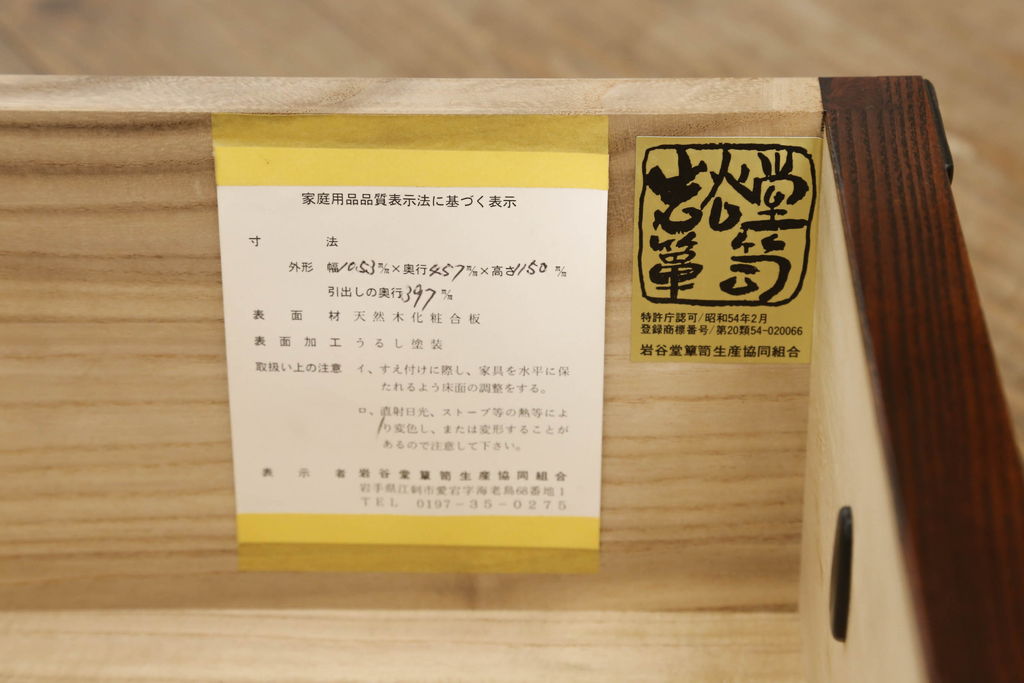 家庭用品品質表示法に基づく表示
寸 法
外形 幅1053㎜×奥行457㎜×高さ1150㎜
引出しの奥行397㎜
表面材 天然木化粧合板
表面加工 うるし塗装
取扱い上の注意 イ、すえ付けに際し、家具を水平に保
たれるよう床面の調整をする。
ロ、直射日光、ストーブ等の熱等によ
り変色し、または変形することが
あるので注意して下さい。
表示者 岩谷堂簞笥生産協同組合
岩手県江刺市愛宕字海老島68番地1
TEL 0197-35-0275
岩谷堂
簞笥
特許庁認可/昭和54年2月
登録商標番号/第20類54-020066
岩谷堂簞笥生産協同組合